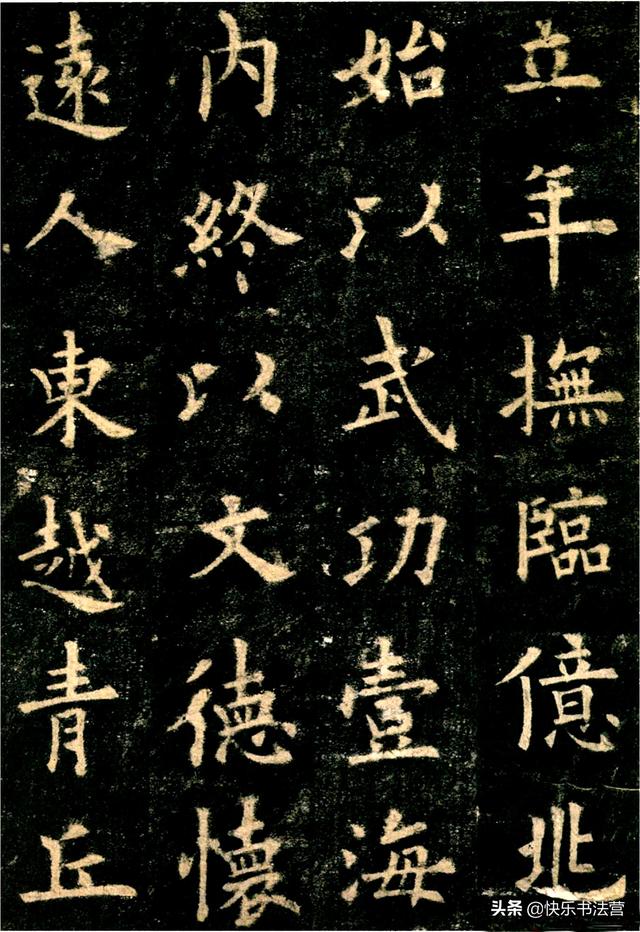 立年撫臨億兆
始以武功壹海
内終以文德懷
遠人東越青丘
头条 @快乐书法营